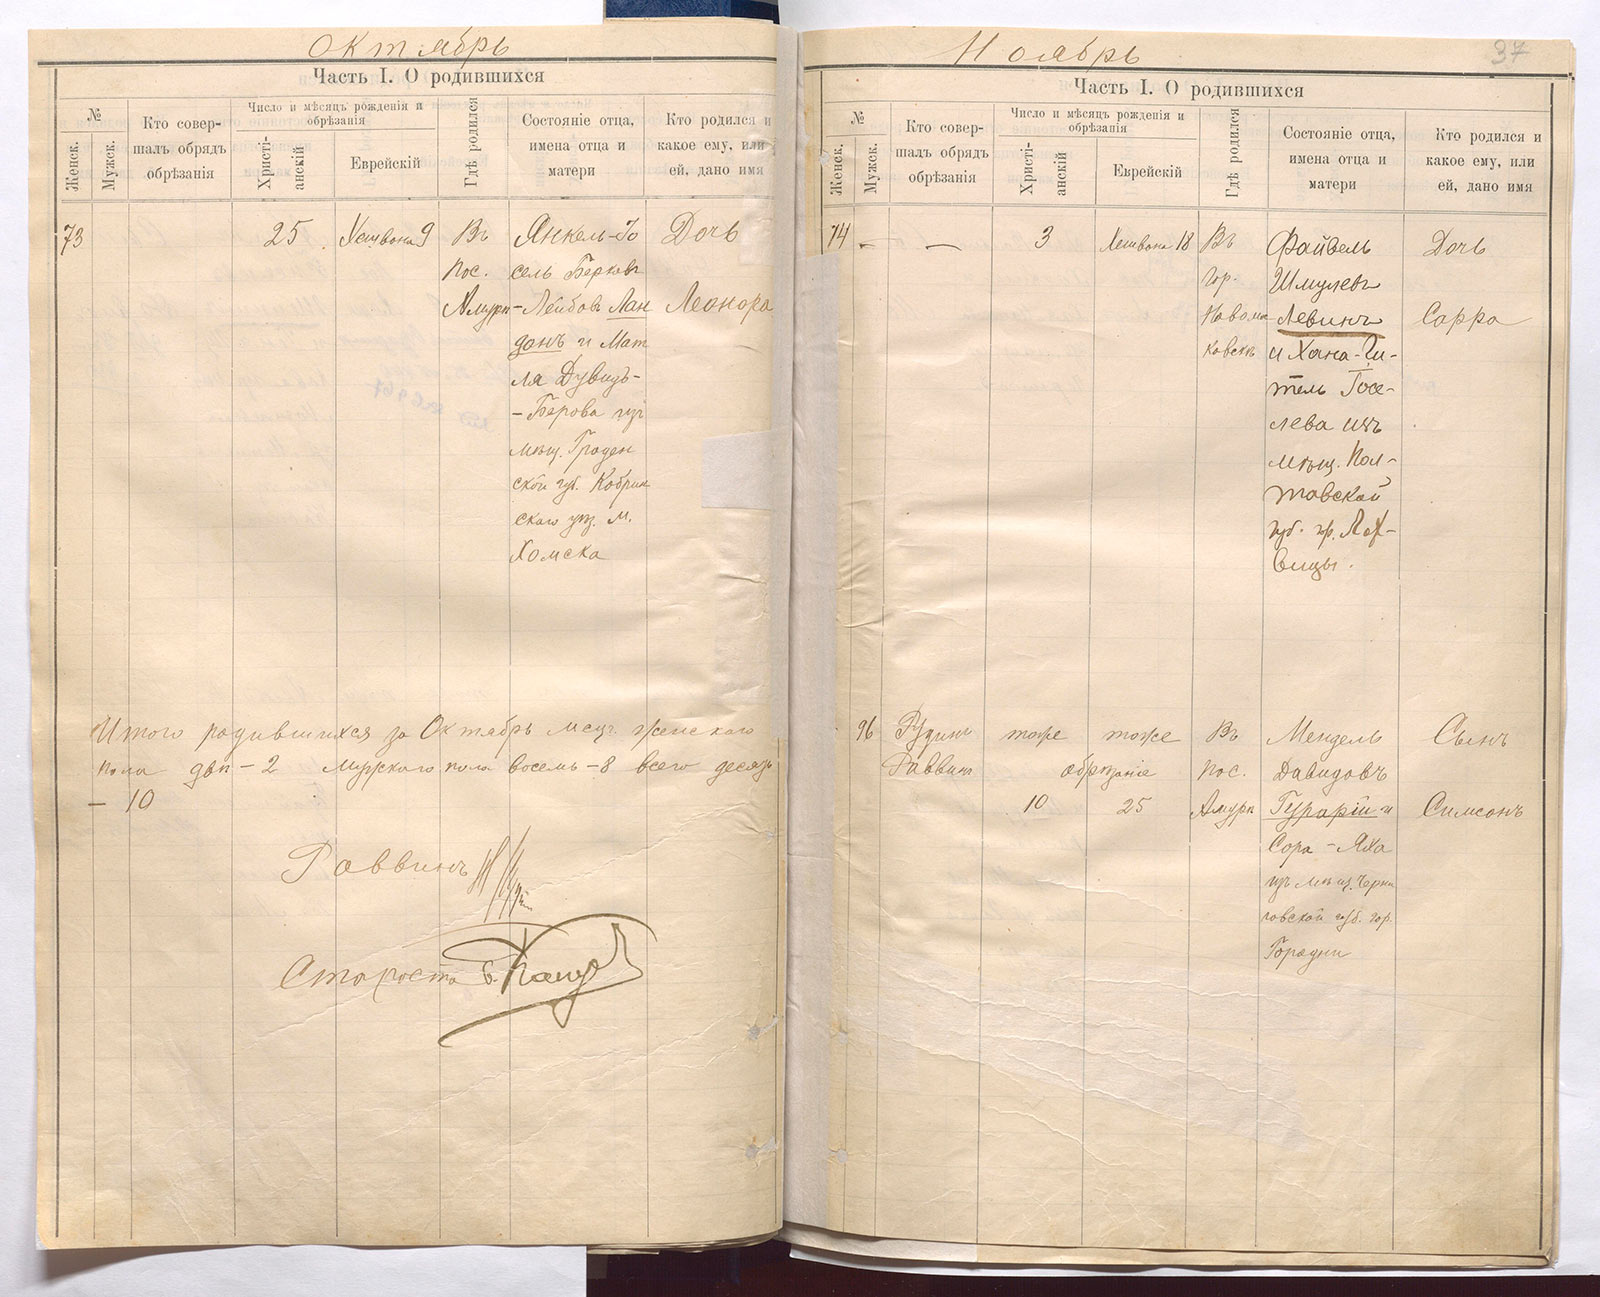 Октябрь
Часть I. О родившихся
№
Женск.
Мужск.
Кто совер-
шалъ обрядъ
обрѣзанія
Число и мѣсяцъ рожденія и
обрѣзанія
Христі-
анскій
Еврейскій
Гдѣ родился
Состояніе отца,
имена отца и
матери
Кто родился и
какое ему, или
ей, дано имя
73
25
Хешвона 9
Въ
пос.
Амурѣ
Янкель-Іо
сель Берковъ
-Лейбовъ Лан
донъ и Мат
ля Дувидъ-
-Берова изъ
мѣщ. Гроден
ской губ. Кобрин
скаго уѣз. м.
Хомска
Дочь
Леонора
Итого родившихся за Октябрь мсцъ женскаго
пола двѣ-2 мужскаго пола восемь-8 всего десять
- 10
Раввинъ
Староста
Ноябрь
37
Часть I. О родившихся
№
Женск.
Мужск.
Кто совер-
шалъ обрядъ
обрѣзанія
Число и мѣсяцъ рожденія и
обрѣзанія
Христі-
анскій
Еврейскій
Гдѣ родился
Состояніе отца,
имена отца и
матери
Кто родился и
какое ему, или
ей, дано имя
74
-
-
3
Хешвона 18
Въ
гор.
Новомо
сковскѣ
Файвель
Шмулевъ
Левинъ
и Хана-Ги-
тель Іосе-
лева изъ
мѣщ. Пол-
тавской
губ. гр. Лох-
вицы.
Дочь
Сарра
96
Рузинъ
Раввинъ
тоже
тоже
обрѣзаніе
10
25
Въ
пос.
Амурѣ
Мендель
Давидовъ
Гурарій и
Сора-Яха
изъ мѣщ. Черни
говской губ. гор.
Городни
Сынъ
Симсонъ